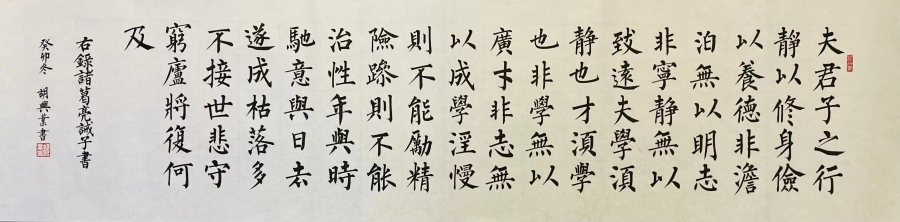 夫君子之行
静以修身儉
以養德非澹
泊無以明志
非寧静無以
致遠夫學湏
静也才湏學
也非學無以
廣才非志無
以成學淫慢
則不能勵精
險躁則不能
治性年與時
馳意與日去
遂成枯落多
不接世悲守
窮廬將復何
及
右錄諸葛亮誡子書
癸卯冬 胡興業書